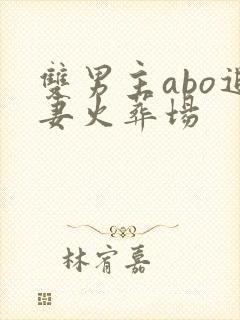 双男主abo追
妻火葬场
林宥嘉